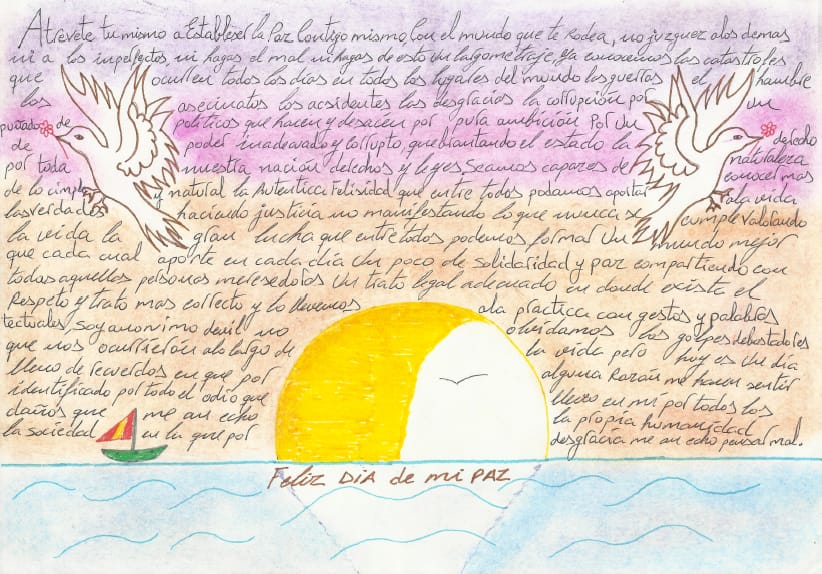 Atrevete tu mismo a Estableser la Paz Contigo mismo, Con el mundo que te Rodea, no juzguez alos demas
ni a los imperfectos, ni hagas el mal ni hagas de esto un largometraje, ya conocemos las catastrofes
que ocurren todos los dias en todos los lugales del mundo las guerras el hambre
los asecinatos los acsidentes las desgracias la corrupción por un
puñado de politicos que hacen y desacen por pura ambición Por un derecho
de poder inadecuado y corrupto, quebrantando el estado la naturaleza
por toda nuestra nación derechos y leyes, Seamos capazes de conocer mas
de lo cimple y natural la Autentica Felisidad que entre todos podamos aportar ala vida
las verdades haciendo justicia no manifestando lo que nunca se cumple valorando
la vida la gran lucha que entre todos podemos formar Un mundo mejor
que cada cual aporte en cada dia Un poco de Solidaridad y paz compartiendo con
todas aquellas personas meresedoras Un trato legal adecuado en donde exista el
Respeto y trato mas correcto y lo llevemos ala practica con gestos y palabras
tectuales, soy anonimo devil no olvidamos los golpes debastadores
que nos ocurrierón alo largo de la vida pero hoy es un dia
lleno de recuerdos en que por alguna Razón me hacen sentir
identificado por todo el odio que llevo en mi por todos los
daños que me an echo la propia humanidad
la sociedad en la que por desgracia me an echo pensar mal.
Feliz DIA de mi PAZ